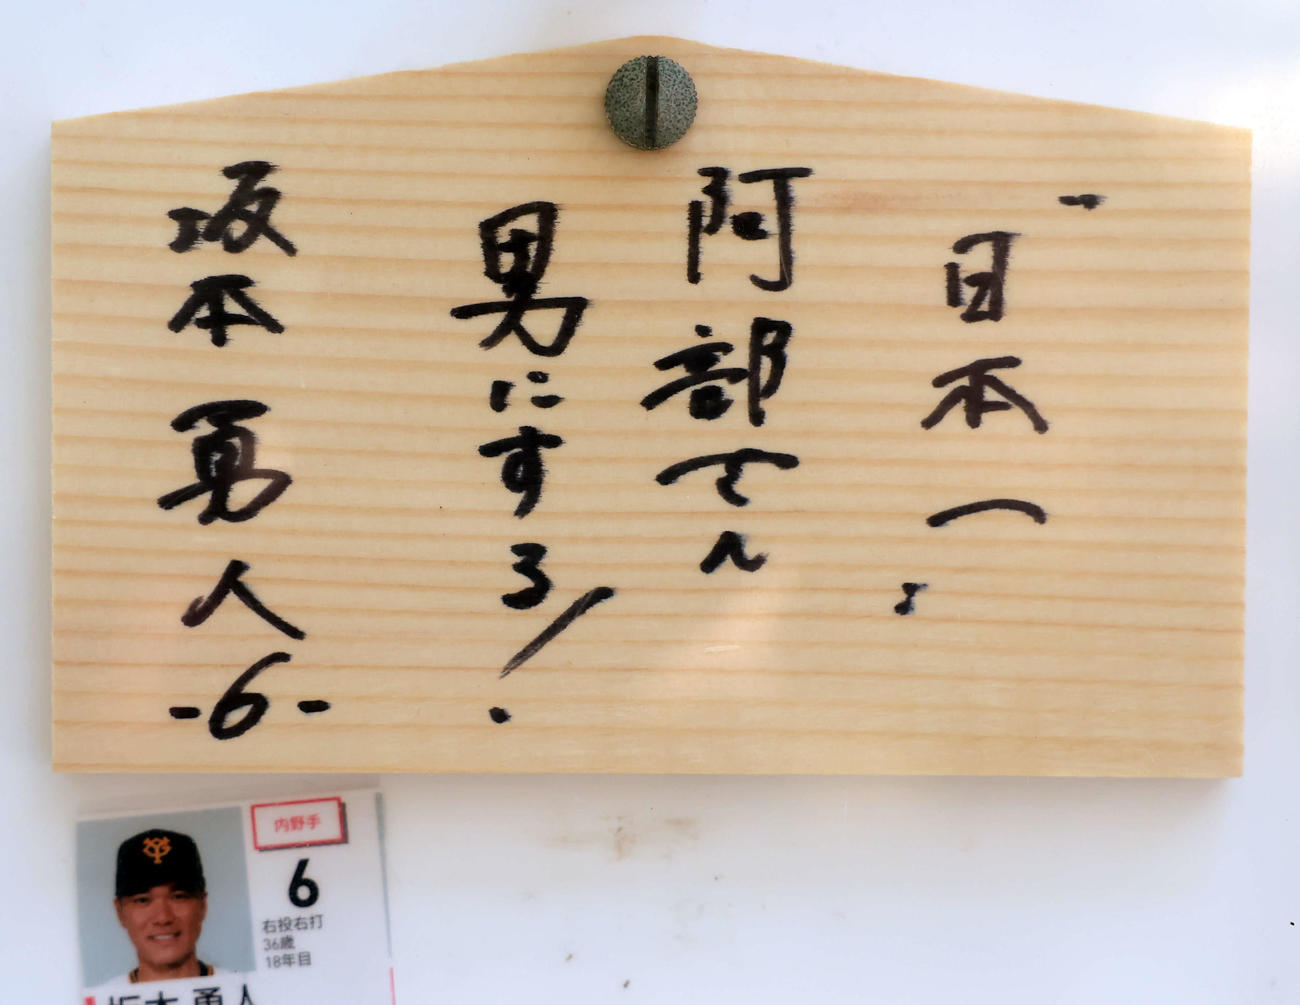 "日本一"
阿部さん
男にする!
坂本勇人
-6-
内野手
6
右投右打
36歳
18年目
坂本勇人